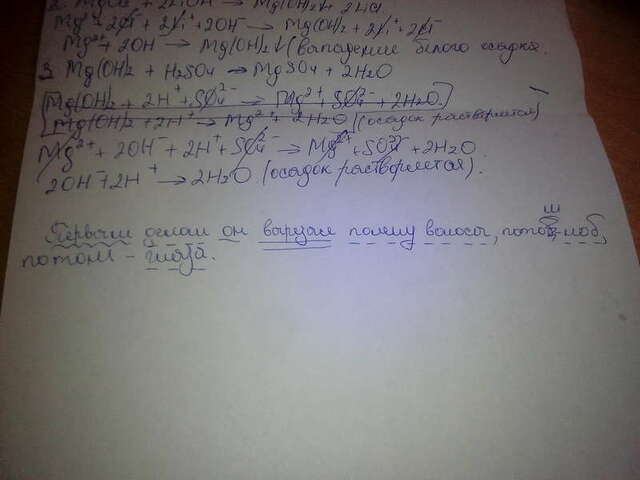 2. MgCl₂ + 2LiOH → Mg(OH)₂↓ + 2LiCl
Mg²⁺ + 2Cl⁻ + 2Li⁺ + 2OH⁻ → Mg(OH)₂ + 2Li⁺ + 2Cl⁻
Mg²⁺ + 2OH⁻ → Mg(OH)₂↓ (выпадение белого осадка.
3. Mg(OH)₂ + H₂SO₄ → MgSO₄ + 2H₂O
Mg(OH)₂ + 2H⁺ + SO₄²⁻ → Mg²⁺ + SO₄²⁻ + 2H₂O.
Mg(OH)₂ + 2H⁺ → Mg²⁺ + 2H₂O (осадок растворяется)
Mg²⁺ + 2OH⁻ + 2H⁺ + SO₄²⁻ → Mg²⁺ + SO₄²⁻ + 2H₂O.
2OH⁻ + 2H⁺ → 2H₂O (осадок растворяется).
Первым делом он вырезал полену волосы, потом - лоб,
потом - глаза.